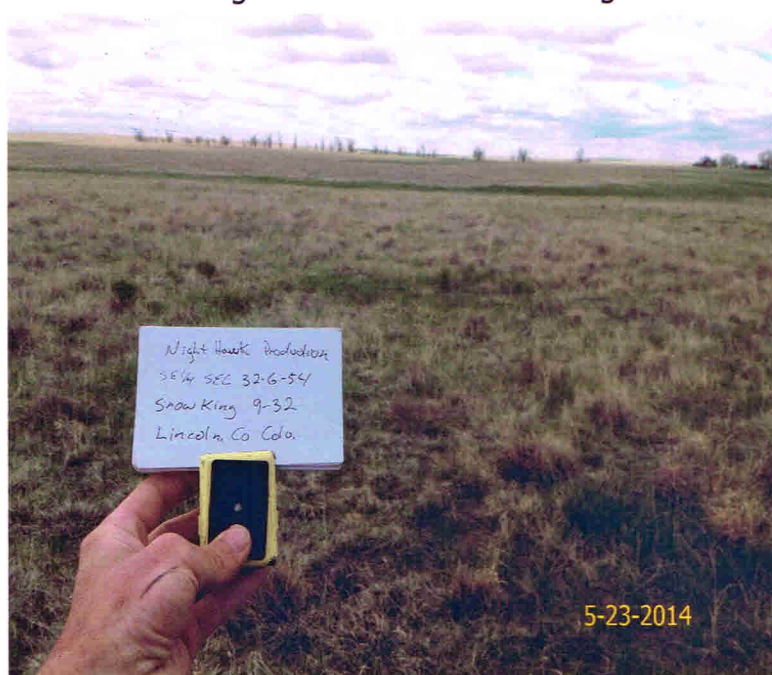 Night Hawk Production
SE1/4 SEC 32-6-54
Snow King 9-32
Lincoln, Co Colo.
5-23-2014